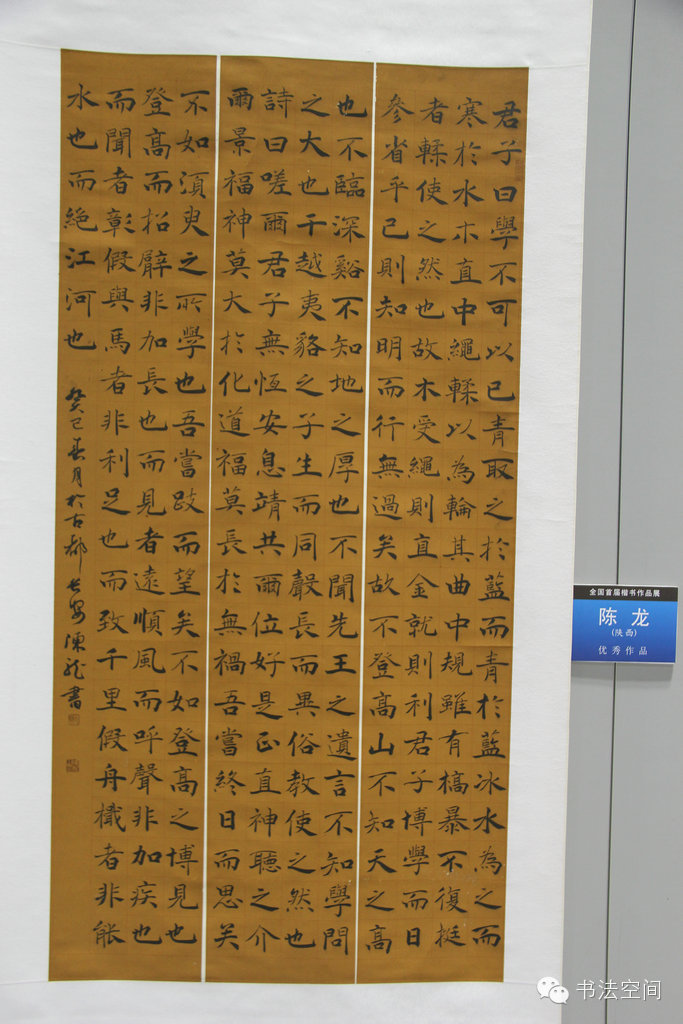 君子曰學不可以已青取之於藍而青於藍冰水為之而
寒於水木直中繩輮以為輪其曲中規雖有槁暴不復挺
者輮使之然也故木受繩則直金就則利君子博學而日
參省乎己則知明而行無過矣故不登高山不知天之高
也不臨深谿不知地之厚也不聞先王之遺言不知學問
之大也干越夷貉之子生而同聲長而異俗教使之然也
詩曰嗟爾君子無恆安息靖共爾位好是正直神聽之介
爾景福神莫大於化道福莫長於無禍吾嘗終日而思矣
不如須臾之所學也吾嘗跂而望矣不如登高之博見也
登高而招臂非加長也而見者遠順風而呼聲非加疾也
而聞者彰假與馬者非利足也而致千里假舟檝者非能
水也而絕江河也 癸巳春月於古都長安陳龍書
全国首届楷书作品展
陈龙
(陕西)
优秀作品
书法空间